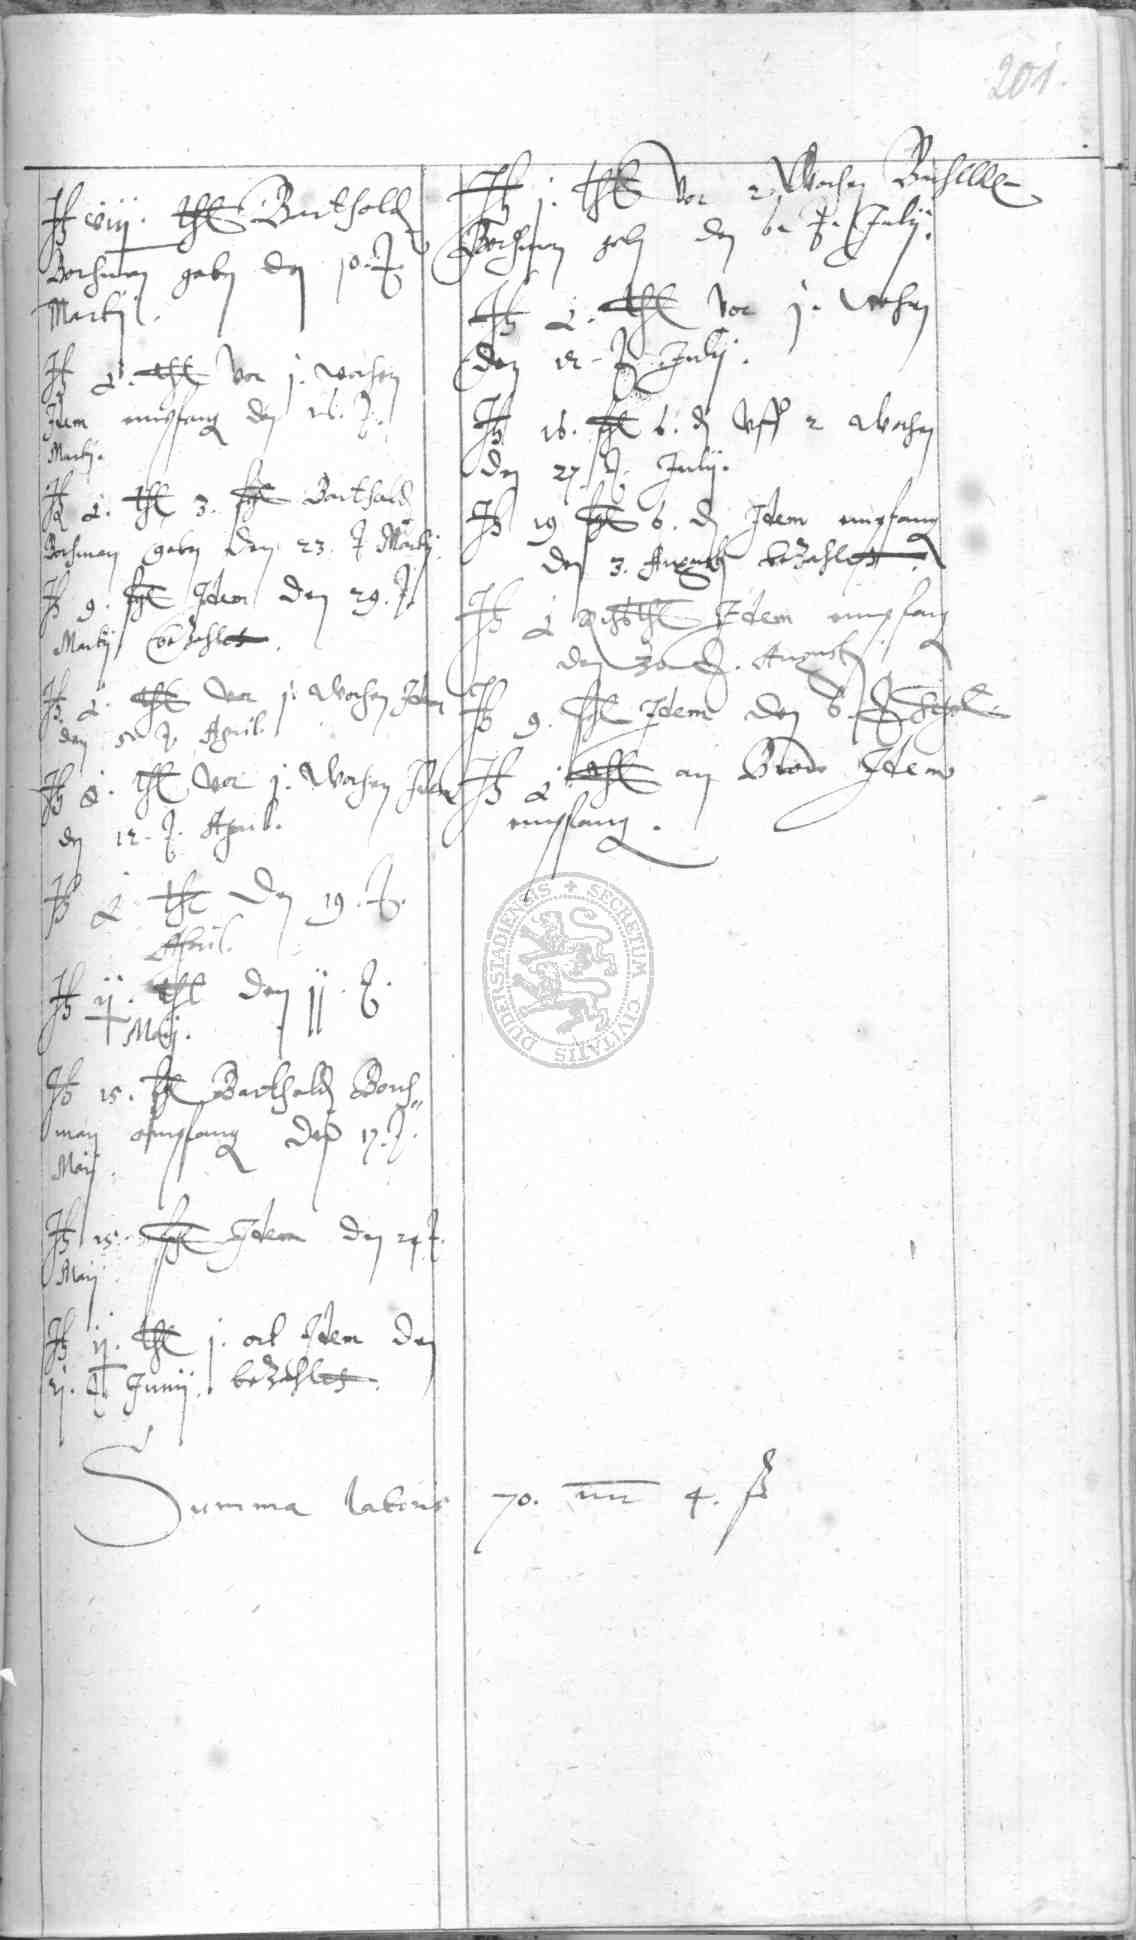 201.
It viij. thl Barthold
Borchman geben den 10. 
Martij.
It 1. thl vor j. wochen
Idem empfang den 16.
Martij.
It 1. thl 3. ßl Barthold
Borchman geben den 23. Martij.
It 9. ßl Idem den 29.
Martij bezahlet.
It 1. thl vor j. wochen Idem
den April.
It thl vor j. wochen Idem
den 12. April.
It thl den 19.
April.
It ij. thl den jj.
Maij.
It 15. ßl Barthold Borch=
man empfang den 17.
Maij.
It 15. ßl Idem den 24
Maij
It ij. thl j. ort Idem den
Junij. bezahlet.
It j. thl vor 2 wochen
Borchman geben den 6. Julij.
It 1. thl vor j. wochen
den 12. Julij.
It 16. ßl 6. d Uff 2 wochen
den 27. Julij.
It 19 ßl 6. d Idem empfang
den 3. Augusti bezahlet.
It 1 Idem empfang
den 30. Augusti
It 9. ßl Idem den 6.
It 1. thl an Brodt Idem
empfang.
Summa lateris 70. 4. ß
DUDERSTADIENSIS + SECRETUM CIVITATIS